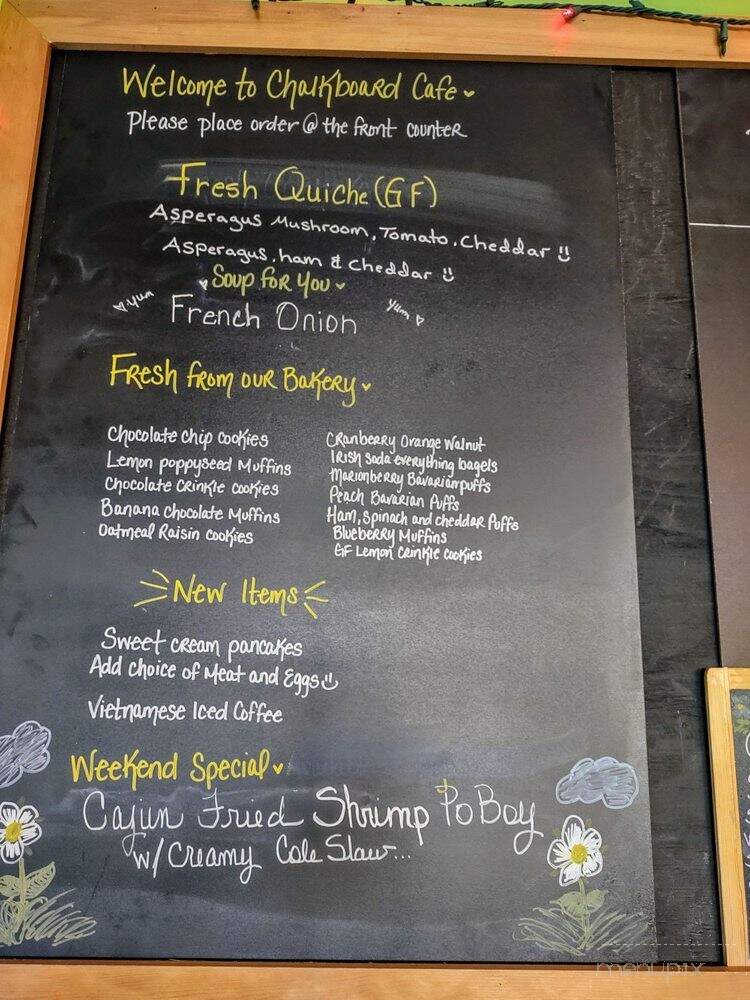 Welcome to Chalkboard Cafe
Please place order @ the front counter
Fresh Quiche (GF)
Asperagus Mushroom, Tomato, Cheddar
Asperagus, ham & cheddar
Soup for You
Yum
French Onion
Yum
Fresh from our Bakery
Chocolate chip cookies
Lemon poppyseed Muffins
Chocolate Crinkle cookies
Banana chocolate Muffins
Oatmeal Raisin cookies
Cranberry Orange Walnut
Irish Soda everything bagels
Marionberry Bavarian puffs
Peach Bavarian Puffs
Ham, Spinach and cheddar Puffs
Blueberry Muffins
GF Lemon Crinkle cookies
New Items
Sweet cream pancakes
Add choice of Meat and Eggs
Vietnamese Iced Coffee
Weekend Special
Cajun Fried Shrimp Po Boy
w/ Creamy Cole Slaw...
menupix